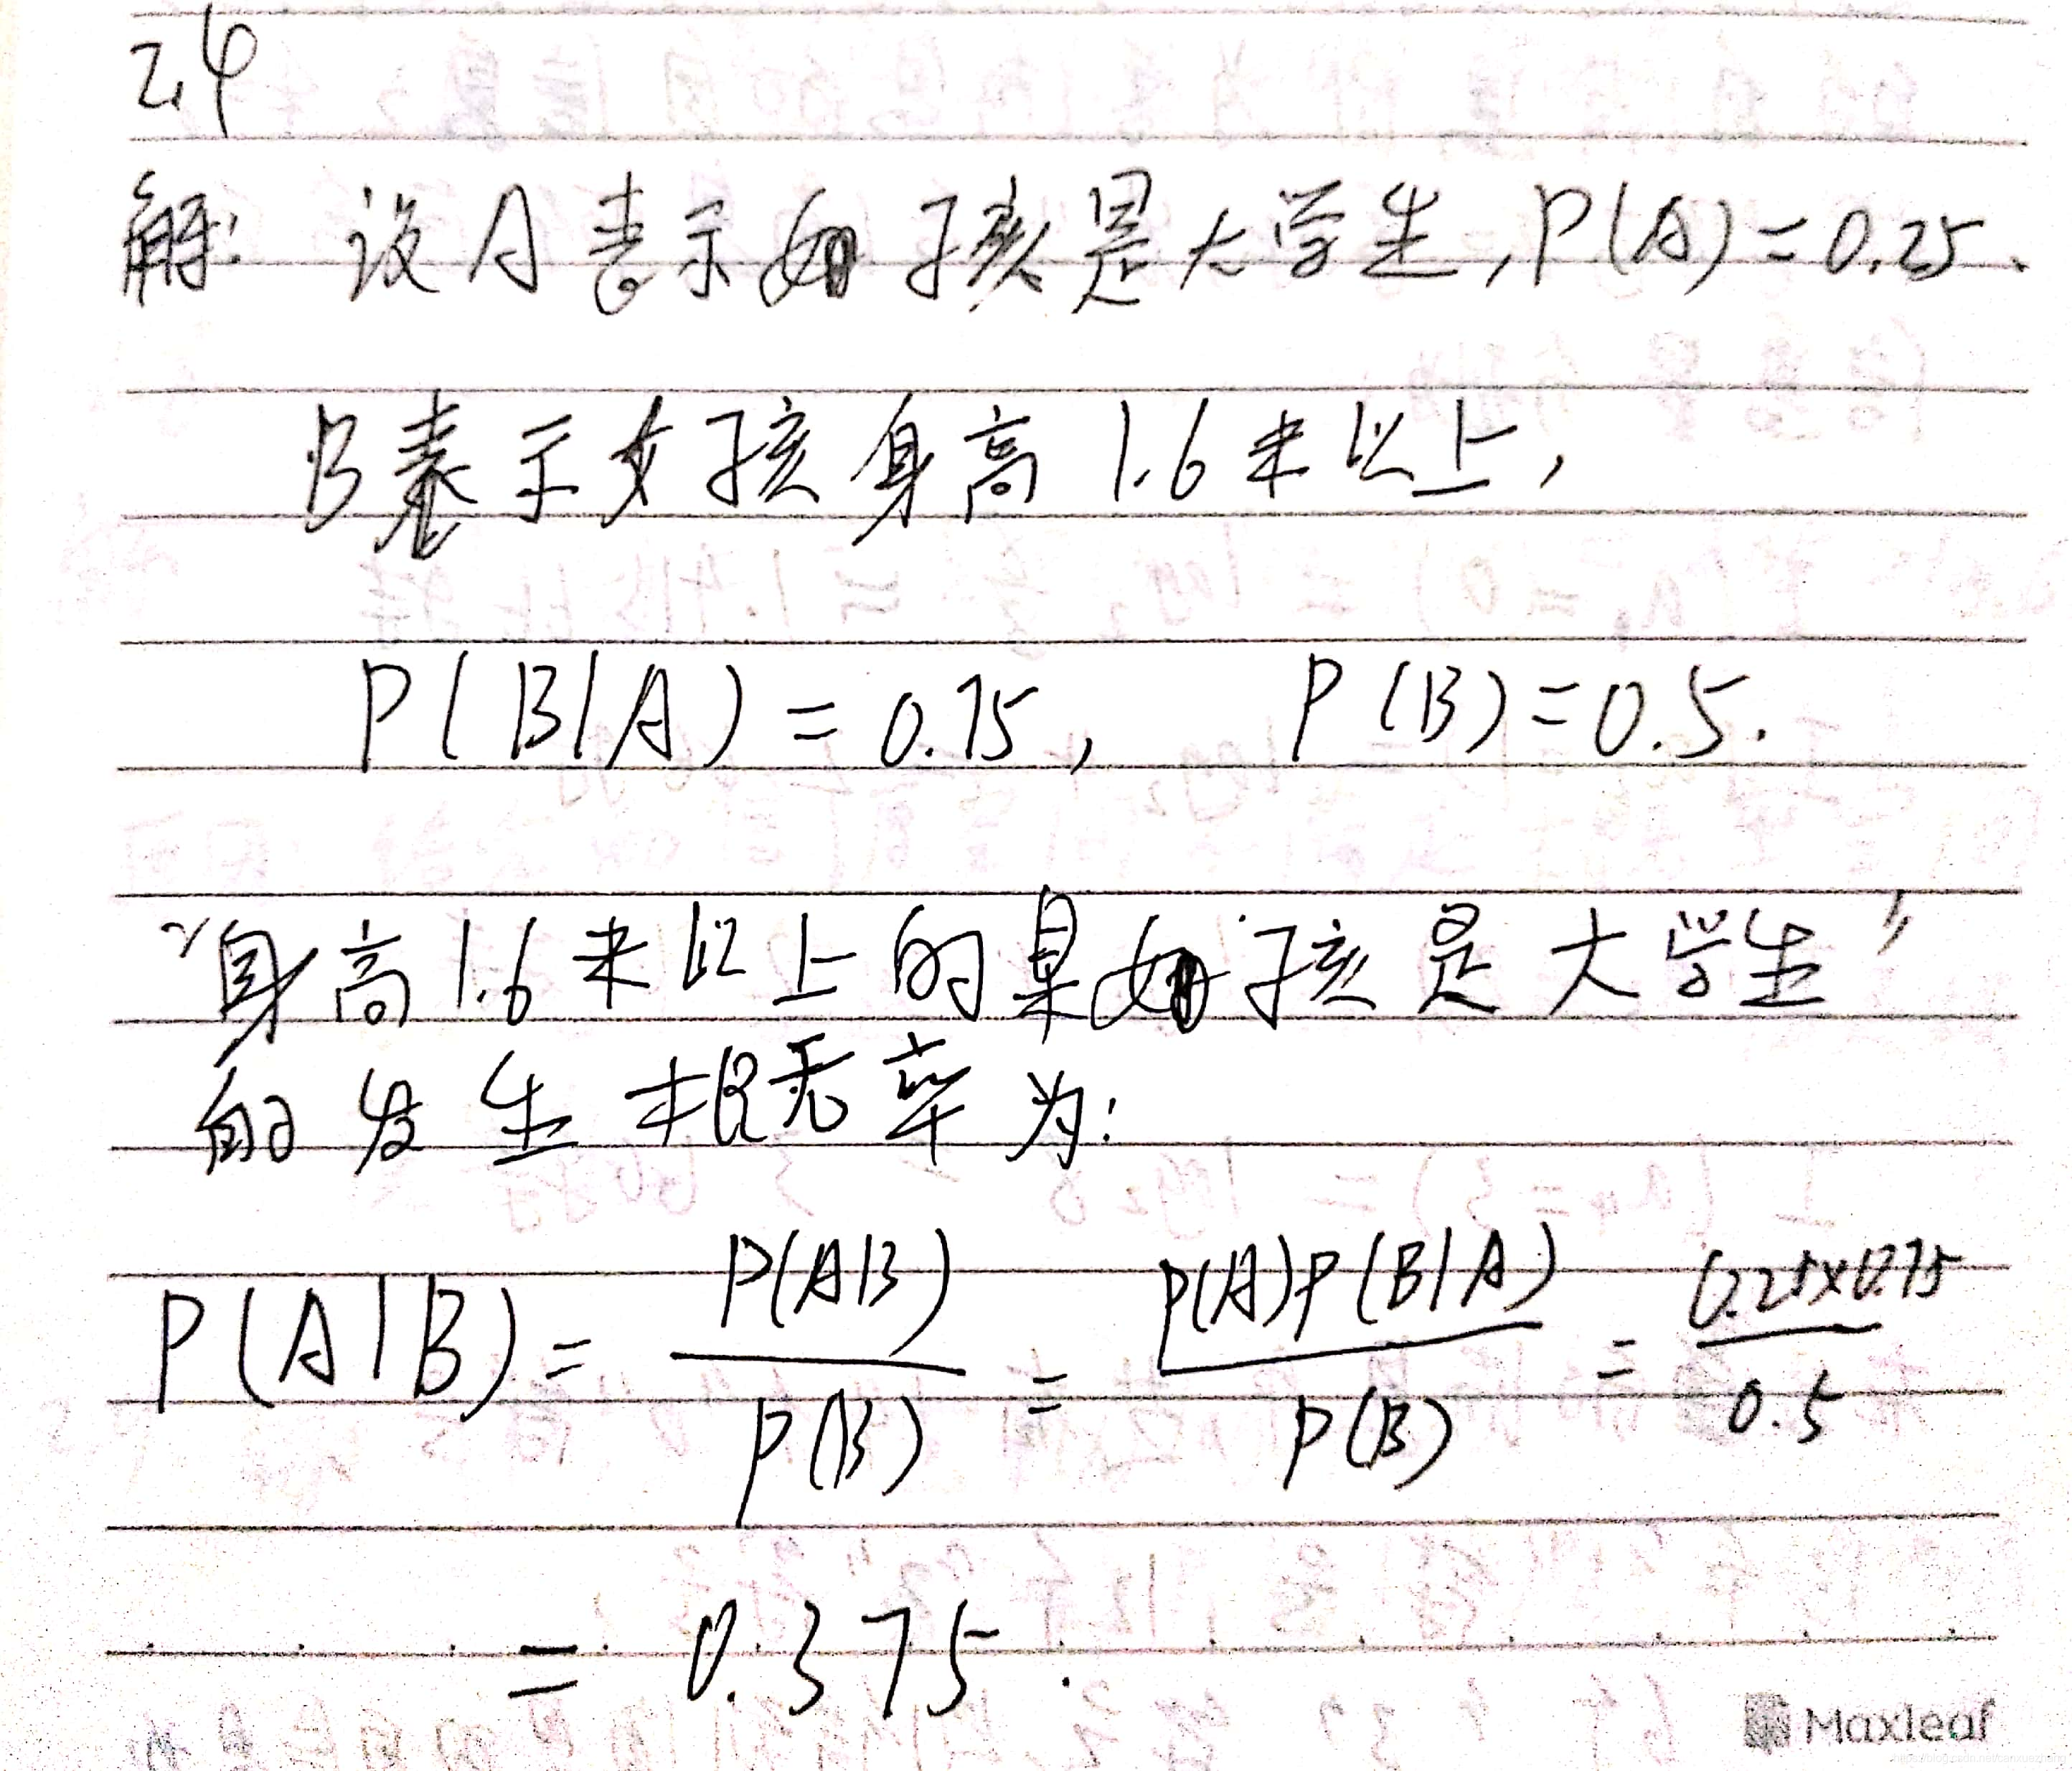 2.4
解: 设A表示女孩是大学生,P(A)=0.25.
B表示女孩身高1.6米以上,
P(B|A)=0.75, P(B)=0.5.
"身高1.6米以上的某女孩是大学生"
的发生概率为:
P(A|B)= P(AB)/P(B) = P(A)P(B|A)/P(B) = 0.25×0.75/0.5
= 0.375.
Maxleaf